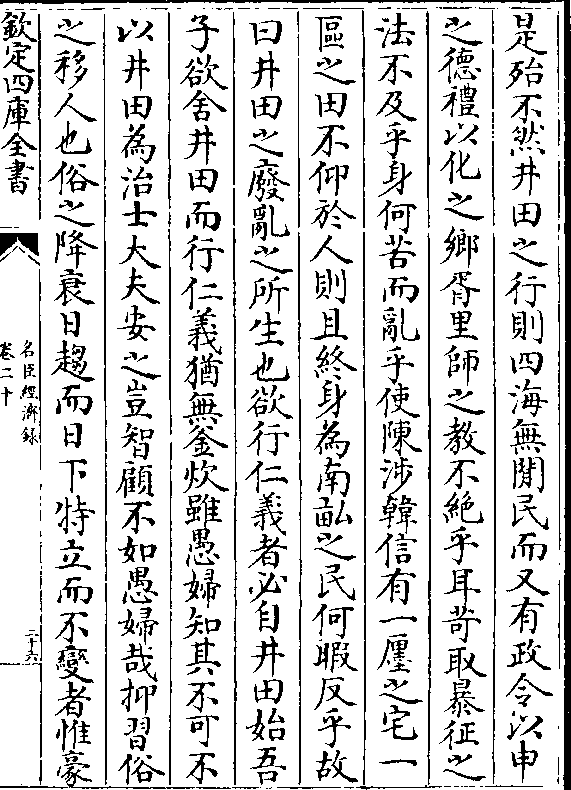 是殆不然井田之行則四海無閒民而又有政令以申
之德禮以化之鄉胥里師之教不絶乎耳苛取暴征之
法不及乎身何苦而亂乎使陳涉韓信有一廛之宅一
區之田不仰於人則且終身為南畝之民何暇反乎故
曰井田之廢亂之所生也欲行仁義者必自井田始吾
子欲舍井田而行仁義猶無釜炊雖愚婦知其不可不
以井田為治士大夫安之豈智顧不如愚婦哉抑習俗
之移人也俗之降衰日趨而日下特立而不變者惟豪
欽定四庫全書
名臣經濟録
卷二十
二十六